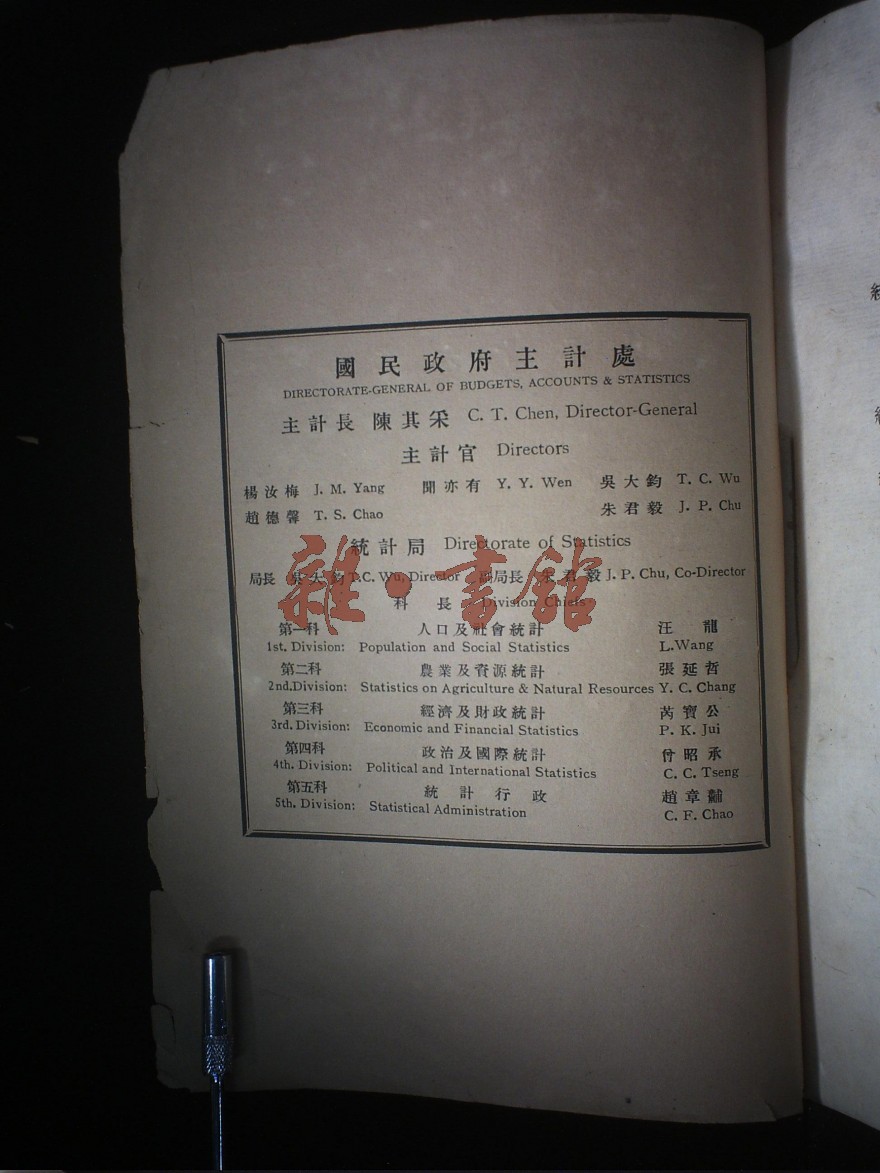 國民政府主計處
DIRECTORATE-GENERAL OF BUDGETS, ACCOUNTS & STATISTICS
主計長 陳其采 C. T. Chen, Director-General
主計官 Directors
楊汝梅 J. M. Yang 聞亦有 Y. Y. Wen 吳大鈞 T. C. Wu
趙德馨 T. S. Chao 朱君毅 J. P. Chu
統計局 Directorate of Statistics
局長 吳大鈞 T.C. Wu, Director 副局長 朱君毅 J. P. Chu, Co-Director
雜·書館
科長 Division Chiefs
第一科 人口及社會統計 汪龍
1st. Division: Population and Social Statistics L.Wang
第二科 農業及資源統計 張延哲
2nd.Division: Statistics on Agriculture & Natural Resources Y. C. Chang
第三科 經濟及財政統計 芮寶公
3rd. Division: Economic and Financial Statistics P. K. Jui
第四科 政治及國際統計 曾昭承
4th. Division: Political and International Statistics C. C. Tseng
第五科 統計行政 趙章黼
5th. Division: Statistical Administration C. F. Chao